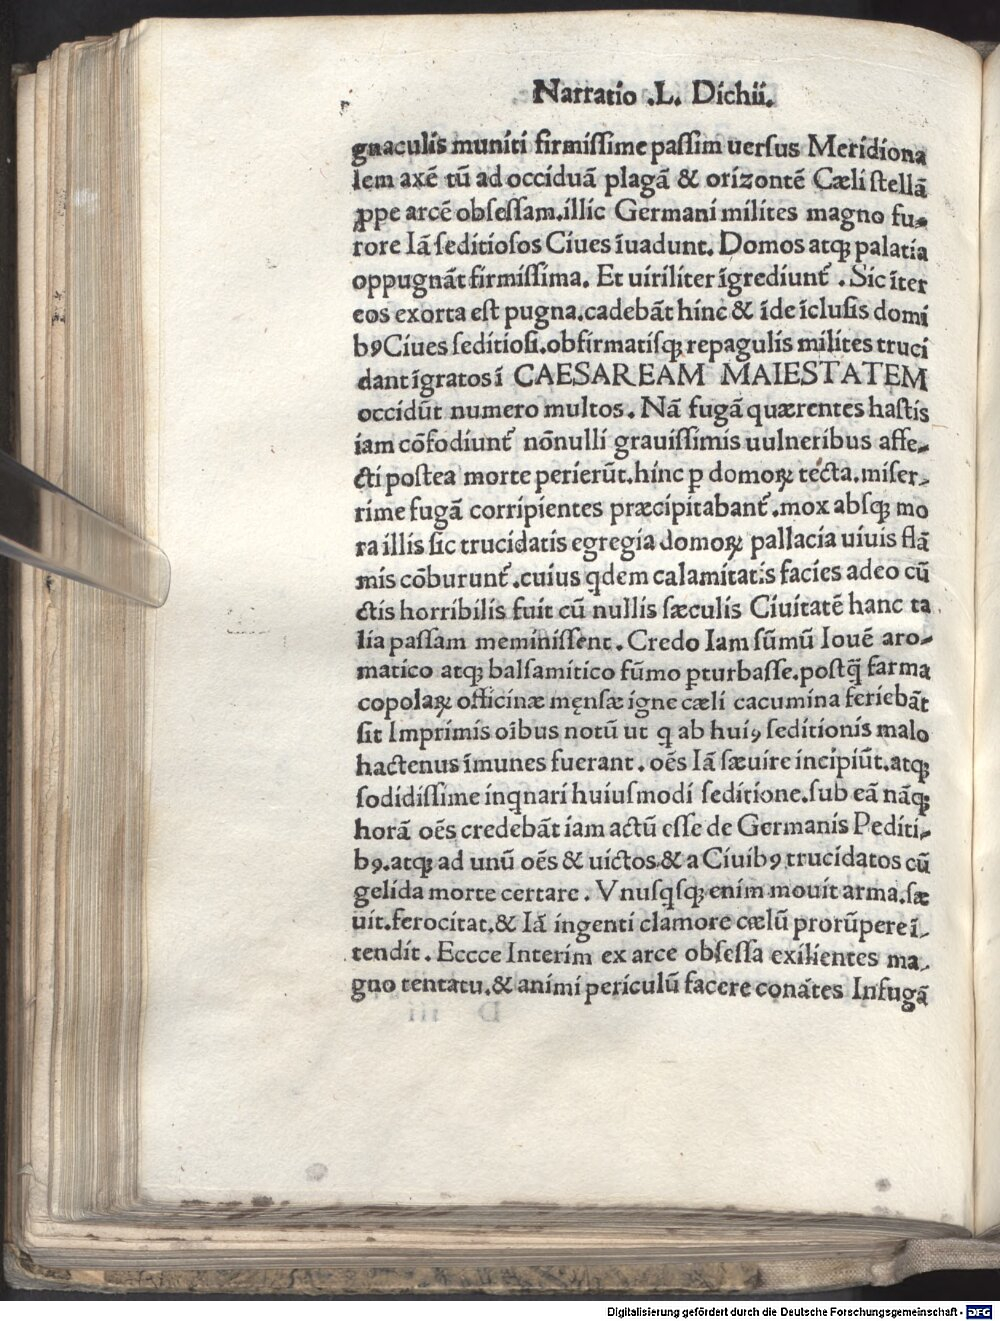 Narratio .L. Dichii.
gnaculis muniti firmiſſime paſſim uerſus Meridiona
lem axē tū ad occiduā plagā & orizontē Cæli ſtellā
ꝓpe arcē obſeſſam.illic Germani milites magno fu⸗
rore Iā ſeditioſos Ciues īuadunt. Domos atqꝫ palatia
oppugnāt firmiſſima. Et uiriliter īgrediunt᷑ . Sic īter
eos exorta eſt pugna.cadebāt hinc & īde īcluſis domi
bꝰ Ciues ſeditioſi.obfirmatiſqꝫ repagulis milites truci
dant īgratos ī CAESAREAM MAIESTATEM
occidūt numero multos. Nā fugā quærentes haſtis
iam cōfodiunt᷑ nōnulli grauiſſimis uulneribus affe⸗
cti poſtea morte perierūt.hinc ꝑ domoꝝ tecta.miſer⸗
rime fugā corripientes præcipitabant᷑.mox abſqꝫ mo
ra illis ſic trucidatis egregia domoꝝ pallacia uiuis flā
mis cōburunt᷑.cuius qdem calamitatis facies adeo cū
ctis horribilis fuit cū nullis ſæculis Ciuitatē hanc ta
lia paſſam meminiſſent. Credo Iam ſūmū Iouē aro⸗
matico atqꝫ balſamitico fūmo ꝑturbaſſe.poſtq̄ farma
copolaꝝ officinæ męnſæ igne cæli cacumina feriebāt
ſit Imprimis oībus notū ut q ab huiꝰ ſeditionis malo
hactenus īmunes fuerant. oēs Iā ſæuire incipiūt.atqꝫ
ſodidiſſime inqnari huiuſmodi ſeditione.ſub eā nāqꝫ
horā oēs credebāt iam actū eſſe de Germanis Pediti⸗
bꝰ.atqꝫ ad unū oēs & uictos.& a Ciuibꝰ trucidatos cū
gelida morte certare. Vnuſqſqꝫ enim mouit arma.ſæ
uit.ferocitat.& Iā ingenti clamore cælū prorūpere ī⸗
tendit. Eccce Interim ex arce obſeſſa exilientes ma⸗
gno tentatu.& animi periculū facere conātes Infugā
Digitalisierung gefördert durch die Deutsche Forschungsgemeinschaft - DFG